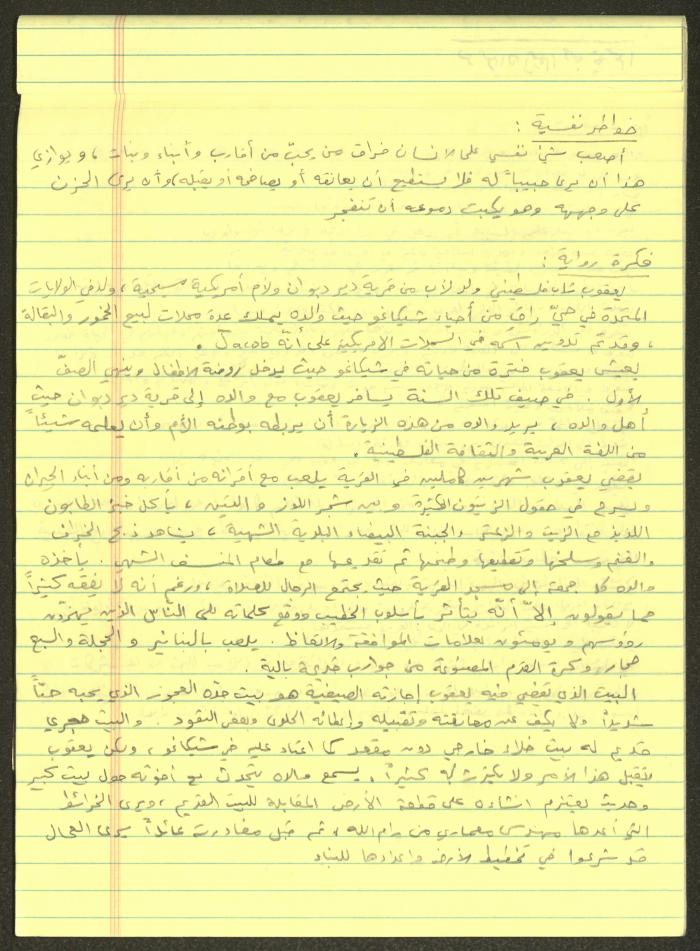 خواطر نفسية :
أصعب شيء نفسي على الانسان فراق من يحبّ من أقارب وأبناء وبنات ، ويوازي
هذا أن يرى حبيباً له فلا يستطيع أن يعانقه أو يصافحه أو يقبله ، وأن يرى الحزن
على وجهه وهو يكبت دموعه أن تنفجر
فكرة رواية :
يعقوب شاب فلسطيني ولد لأب من قرية دير دبوان ولأم أمريكية مسيحية ، ولد في الولايات
المتحدة في حيّ راقٍ من أحياء شيكاغو حيث والده يملك عدة محلات لبيع الخمور والبقالة
، وقد تم تدوين اسمه في السجلات الامريكية على أنّه Jacob .
يعيش يعقوب فترة من حياته في شيكاغو حيث يدخل روضة الاطفال وينهي الصفّ
الأول . في صيف تلك السنة يسافر يعقوب مع والده إلى قرية دير دبوان حيث
أهل والده ، يريد والده من هذه الزيارة أن يربطه بوطنه الأم وأن يعلمه شيئاً
من اللغة العربية والثقافة الفلسطينية .
يقضي يعقوب شهرين كاملين في القرية يلعب مع أقرانه من أقاربه ومن أبناء الجيران
ويسرح في حقول الزيتون الكثيرة و بين شجر اللوز و التين ، يأكل خبز الطابون
اللذيذ مع الزيت والزعتر والجبنة البيضاء البلدية الشهية ، يشاهد ذبح الخراف
والغنم وسلخها وتقطيعها وطبخها ثم تقديمها مع طعام المنسف الشهي . يأخذه
والده كل جمعة إلى مسجد القرية حيث يجتمع الرجال للصلاة ، ورغم أنه لا يفقه كثيراً
مما يقولون إلاّ أنّه يتأثر بأسلوب الخطيب ووقع كلماته على النّاس الذين يهزّون
رؤوسهم و يومئون بعلامات الموافقة والاتعاظ . يلعب بالبنانير و الحجلة والسبع
حجار وكرة القدم المصنوعة من جوارب قديمة بالية .
البيت الذي يقضي فيه يعقوب إجازته الصيفية هو بيت جدّه العجوز الذي يحبه حبّاً
شديداً ولا يكف عن معانقته وتقبيله وإعطائه الحلوى وبعض النقود . والبيت حجري
قديم له بيت خلاء خارجي دون مقعد كما اعتاد عليه في شيكاغو ، ولكن يعقوب
يتقبل هذا الأمر ولا يكترث له كثيراً . يسمع والده يتحدث مع أخوته حول بيت كبير
وحديث يعتزم انشاءه على قطعة الأرض المقابلة للبيت القديم ، ويرى الخرائط
التي أعدها مهندس معماري من رام الله ، ثم قبل مغادرته عائداً يرى العمال
قد شرعوا في تخطيط الأرض واعدادها للبناء